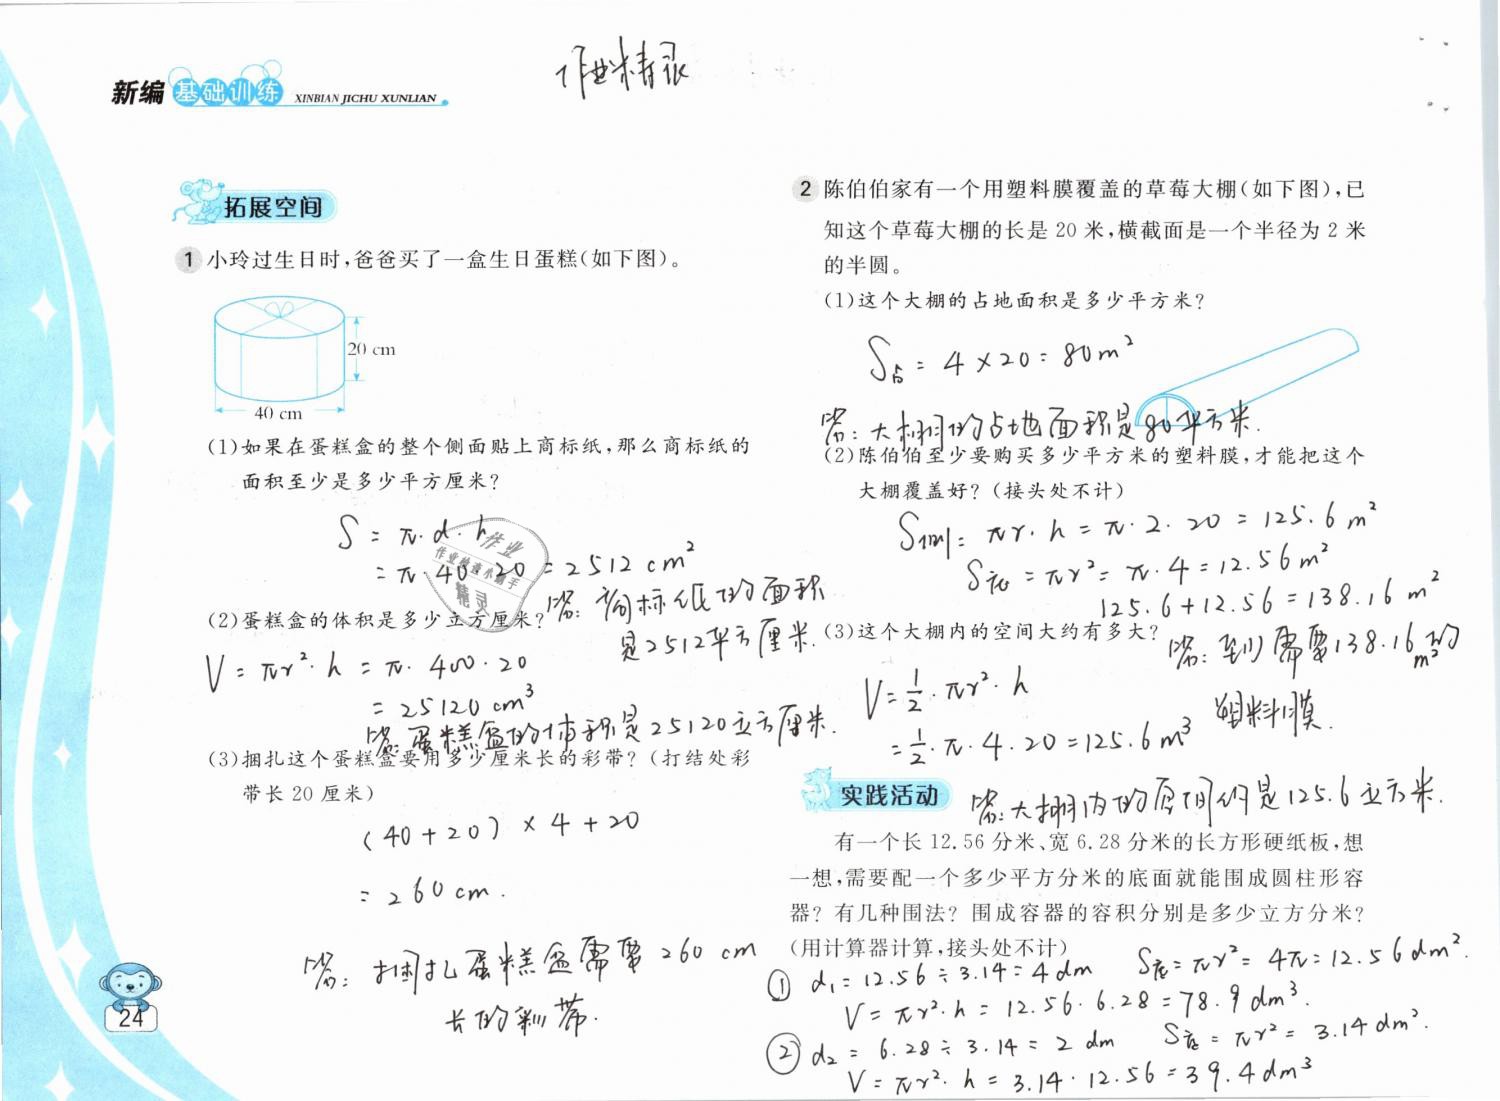 作业精灵
新编 基础训练 XINBIAN JICHU XUNLIAN
拓展空间
1 小玲过生日时,爸爸买了一盒生日蛋糕(如下图)。
20 cm
40 cm
(1)如果在蛋糕盒的整个侧面贴上商标纸,那么商标纸的
面积至少是多少平方厘米?
S = π·d·h
= π·40·20 = 2512 cm²
作业
作业检查小助手
精灵
答:商标纸的面积
是2512平方厘米.
(2)蛋糕盒的体积是多少立方厘米?
V = πr²·h = π·400·20
= 25120 cm³
答:蛋糕盒的体积是25120立方厘米.
(3)捆扎这个蛋糕盒要用多少厘米长的彩带?(打结处彩
带长 20 厘米)
(40+20)×4+20
= 260 cm.
答:捆扎蛋糕盒需要260 cm
长的彩带.
24
2 陈伯伯家有一个用塑料膜覆盖的草莓大棚(如下图),已
知这个草莓大棚的长是 20 米,横截面是一个半径为 2 米
的半圆。
(1)这个大棚的占地面积是多少平方米?
S占 = 4×20 = 80m²
答:大棚的占地面积是80平方米.
(2)陈伯伯至少要购买多少平方米的塑料膜,才能把这个
大棚覆盖好?(接头处不计)
S侧 = πr·h = π·2·20 = 125.6 m²
S底 = πr² = π·4 = 12.56 m²
125.6+12.56 = 138.16 m²
(3)这个大棚内的空间大约有多大?
答:至少需要138.16 m²的
塑料膜.
V = 1/2·πr²·h
= 1/2·π·4·20 = 125.6 m³
答:大棚内的空间约是125.6立方米.
实践活动
有一个长 12.56 分米、宽 6.28 分米的长方形硬纸板,想
一想,需要配一个多少平方分米的底面就能围成圆柱形容
器?有几种围法?围成容器的容积分别是多少立方分米?
(用计算器计算,接头处不计)
① d₁ = 12.56÷3.14 = 4 dm S底 = πr² = 4π = 12.56 dm².
V = πr²·h = 12.56·6.28 = 78.9 dm³.
② d₂ = 6.28÷3.14 = 2 dm S底 = πr² = 3.14 dm².
V = πr²·h = 3.14·12.56 = 39.4 dm³